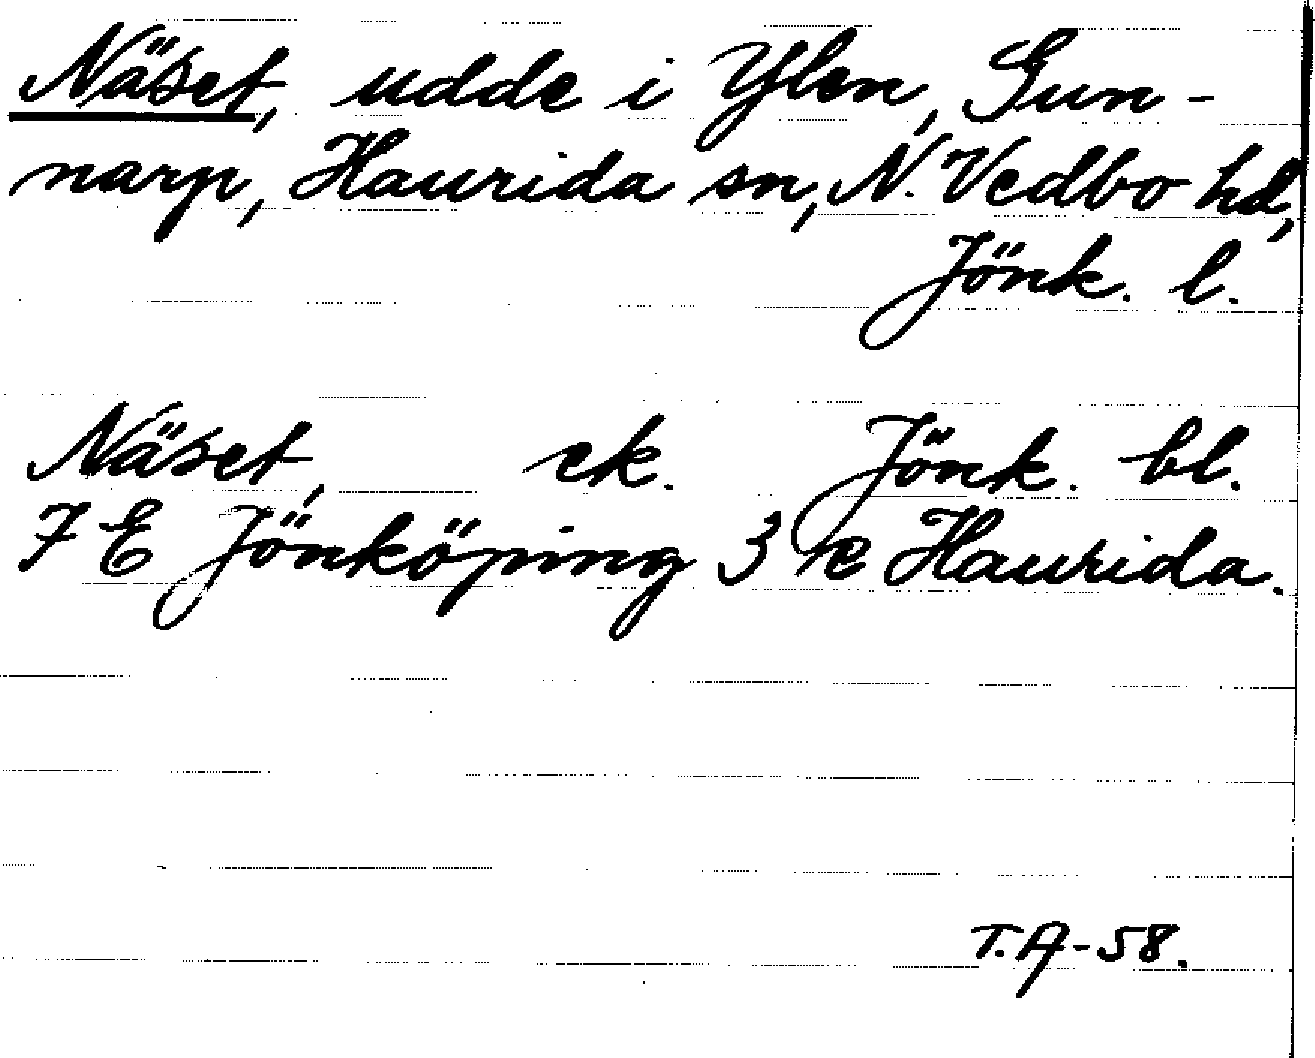 Näset, udde i Ylen, Gun-
narp, Haurida sn, N. Vedbo hd,
Jönk. l.
Näset, ek. Jönk. bl.
7 E Jönköping 3 e Haurida.
T.A-58.